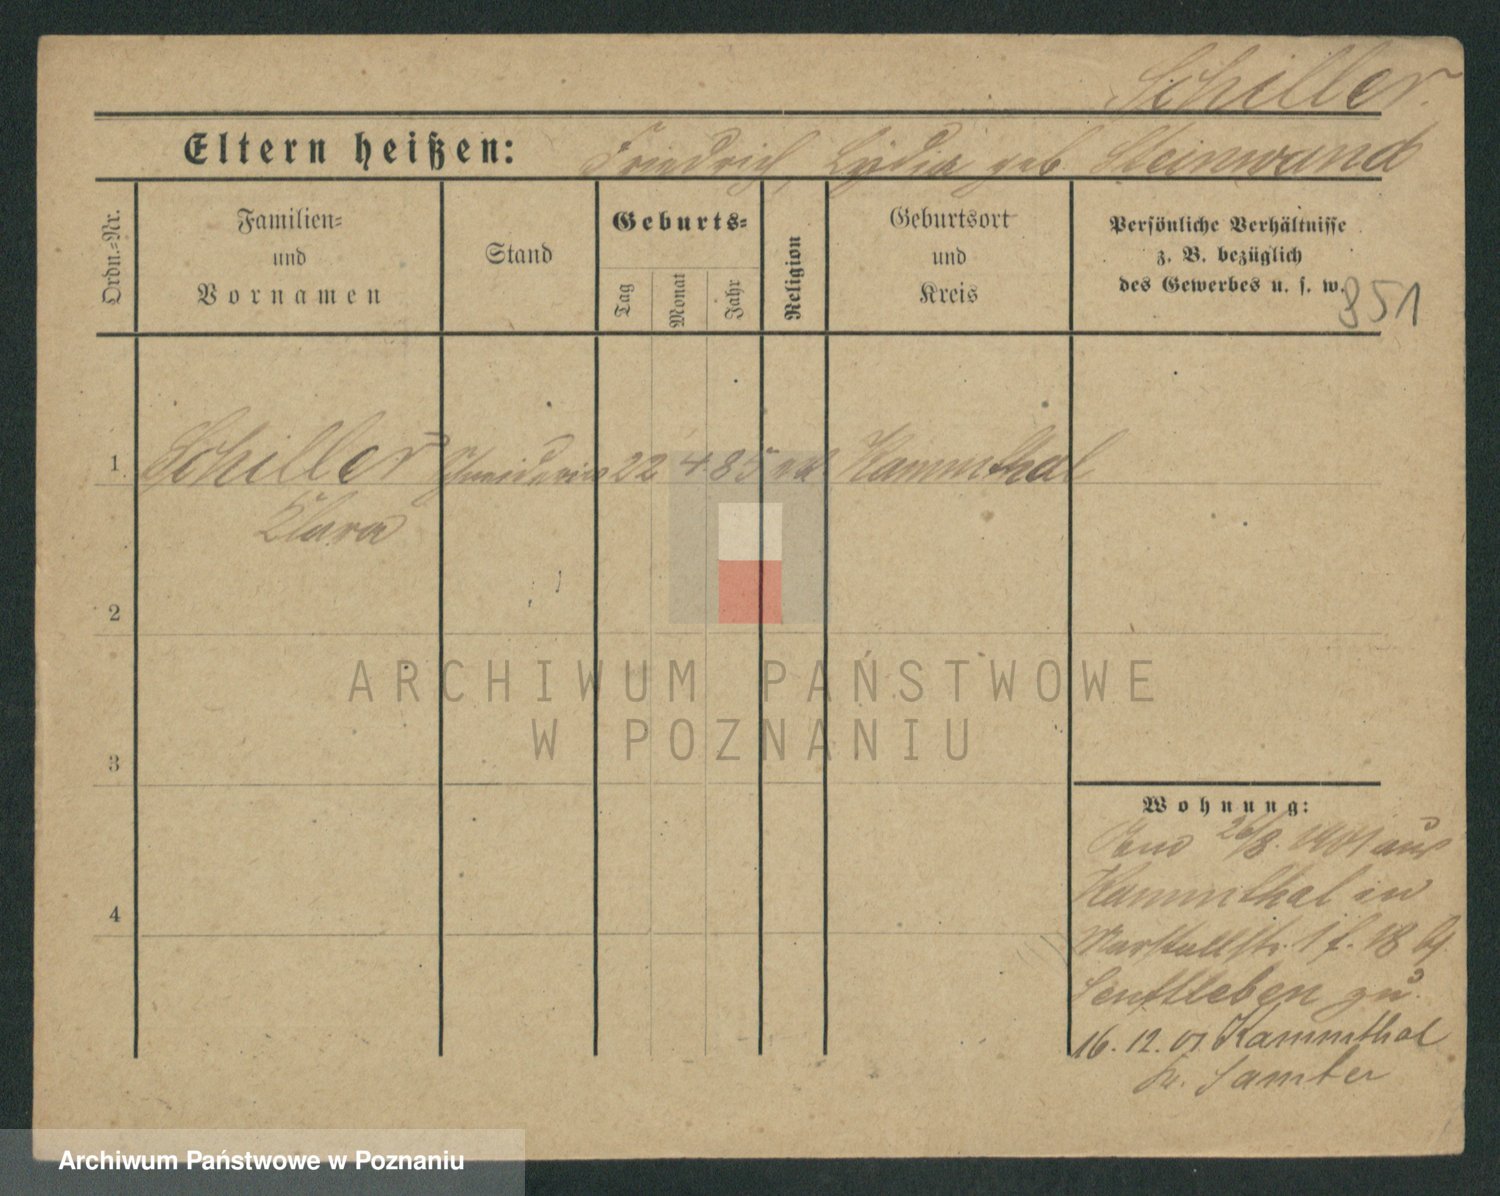 Schiller.
Eltern heißen: Friedrich, Lydia geb Steinwand
Ordn.=Nr.
Familien=
und
Vornamen
Stand
Geburts=
Tag
Monat
Jahr
Religion
Geburtsort
und
Kreis
Persönliche Verhältnisse
z. B. bezüglich
des Gewerbes u. s. w.
851
1 Schiller Schneiderin 22 4 85 Kammthal
Clara
2
3
4
Wohnung:
26/8. 1901 aus
Kammthal in
18 b.
Senftleben zu.
16. 12. 01 Kammthal
Kr. Samter
ARCHIWUM PAŃSTWOWE
W POZNANIU
Archiwum Państwowe w Poznaniu